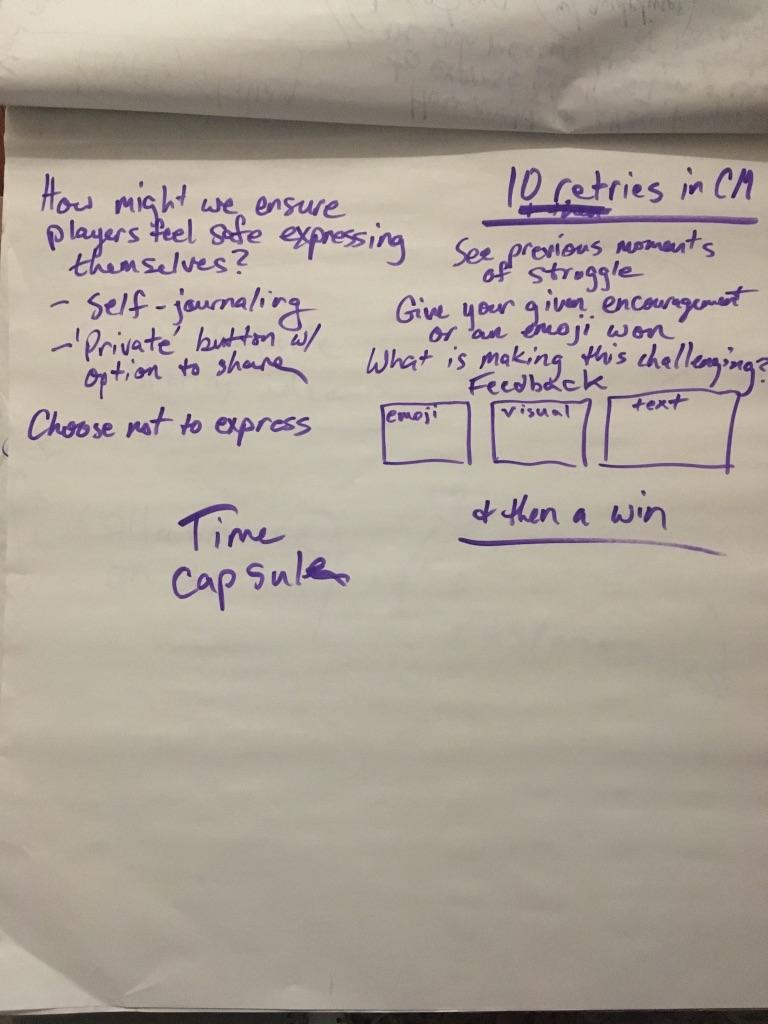 How might we ensure
players feel safe expressing
themselves?
- Self-journaling
- 'Private' button w/
option to share
Choose not to express
Time
capsule
10 retries in CM
See previous moments
of struggle
Give your given encouragement
or an emoji won
What is making this challenging?
Feedback
emoji
visual
text
& then a win